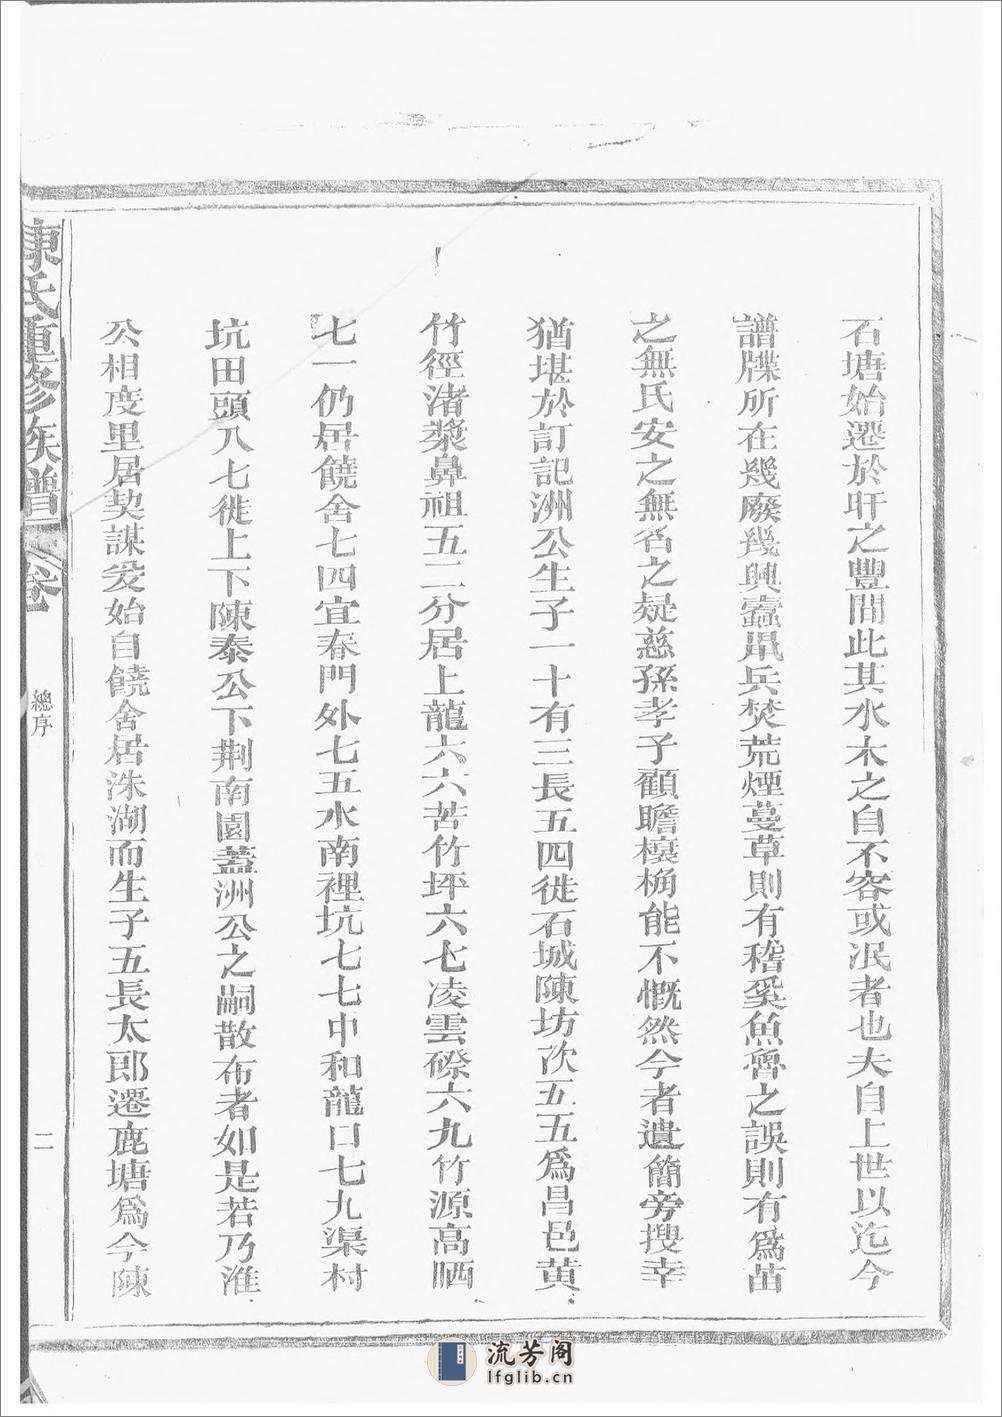 石塘始遷於旴之豐間此其水木之自不容或泯者也夫自上世以迄今
譜牒所在幾廢幾興蠹鼠兵焚荒煙蔓草則有稽奚魚魯之誤則有爲苗
之無氏安之無名之疑慈孫孝子顧瞻榱桷能不慨然今者遺簡旁搜幸
猶堪於訂記洲公生子一十有三長五四徙石城陳坊次五五爲昌邑黄
竹徑渚槳鼻祖五二分居上龍六六苦竹坪六七凌雲磜六九竹源高晒
七一仍居饒舍七四宜春門外七五水南裡坑七七中和龍口七九渠村
坑田頭八七徙上下陳泰公下荆南園蓋洲公之嗣散布者如是若乃淮
公相度里居契謀爰始自饒舍居洙湖而生子五長太郎遷鹿塘爲今陳
陳氏重修族譜 卷一
總序
二
流芳阁
lfglib.cn